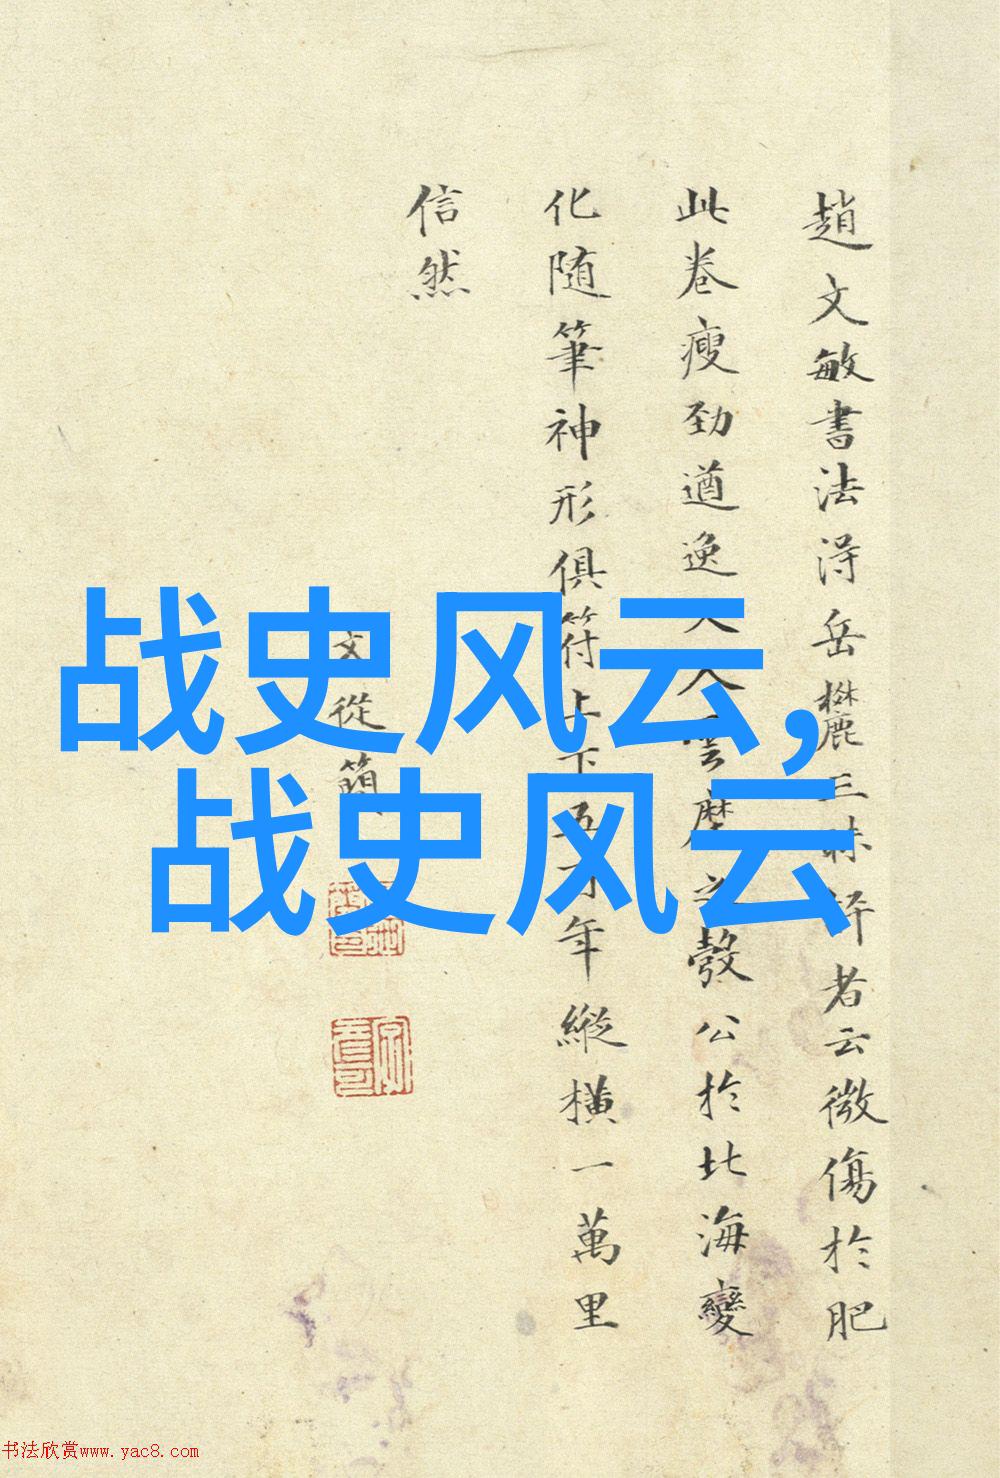 趙文敏書法淂岳麓三昧評者云微傷於肥
此卷瘦劲遒逸大入雲麾之彀公於北海變
化随筆神形俱符上下五百年縱横一萬里
信然
文從簡
战史风云,
战史风云
书法欣赏www.yac8.com